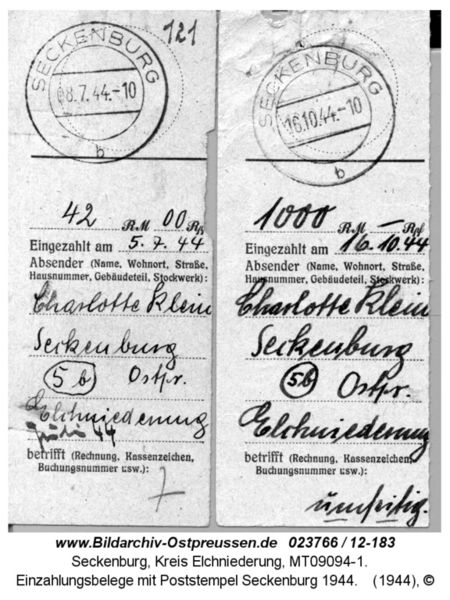 121
SECKENBURG
8.7.44.-10
b
42 RM 00 Rpf
Eingezahlt am 5.7.44
Absender (Name, Wohnort, Straße,
Hausnummer, Gebäudeteil, Stockwerk):
Charlotte Klein
Seckenburg
5b Ostpr.
Elchniederung
44
betrifft (Rechnung, Kassenzeichen,
Buchungsnummer usw.):
7
SECKENBURG
16.10.44.-10
b
1000 RM — Rpf
Eingezahlt am 16.10.44
Absender (Name, Wohnort, Straße,
Hausnummer, Gebäudeteil, Stockwerk):
Charlotte Klein
Seckenburg
5b Ostpr.
Elchniederung
betrifft (Rechnung, Kassenzeichen,
Buchungsnummer usw.):
umseitig.
www.Bildarchiv-Ostpreussen.de 023766 / 12-183
Seckenburg, Kreis Elchniederung, MT09094-1.
Einzahlungsbelege mit Poststempel Seckenburg 1944. (1944), ©